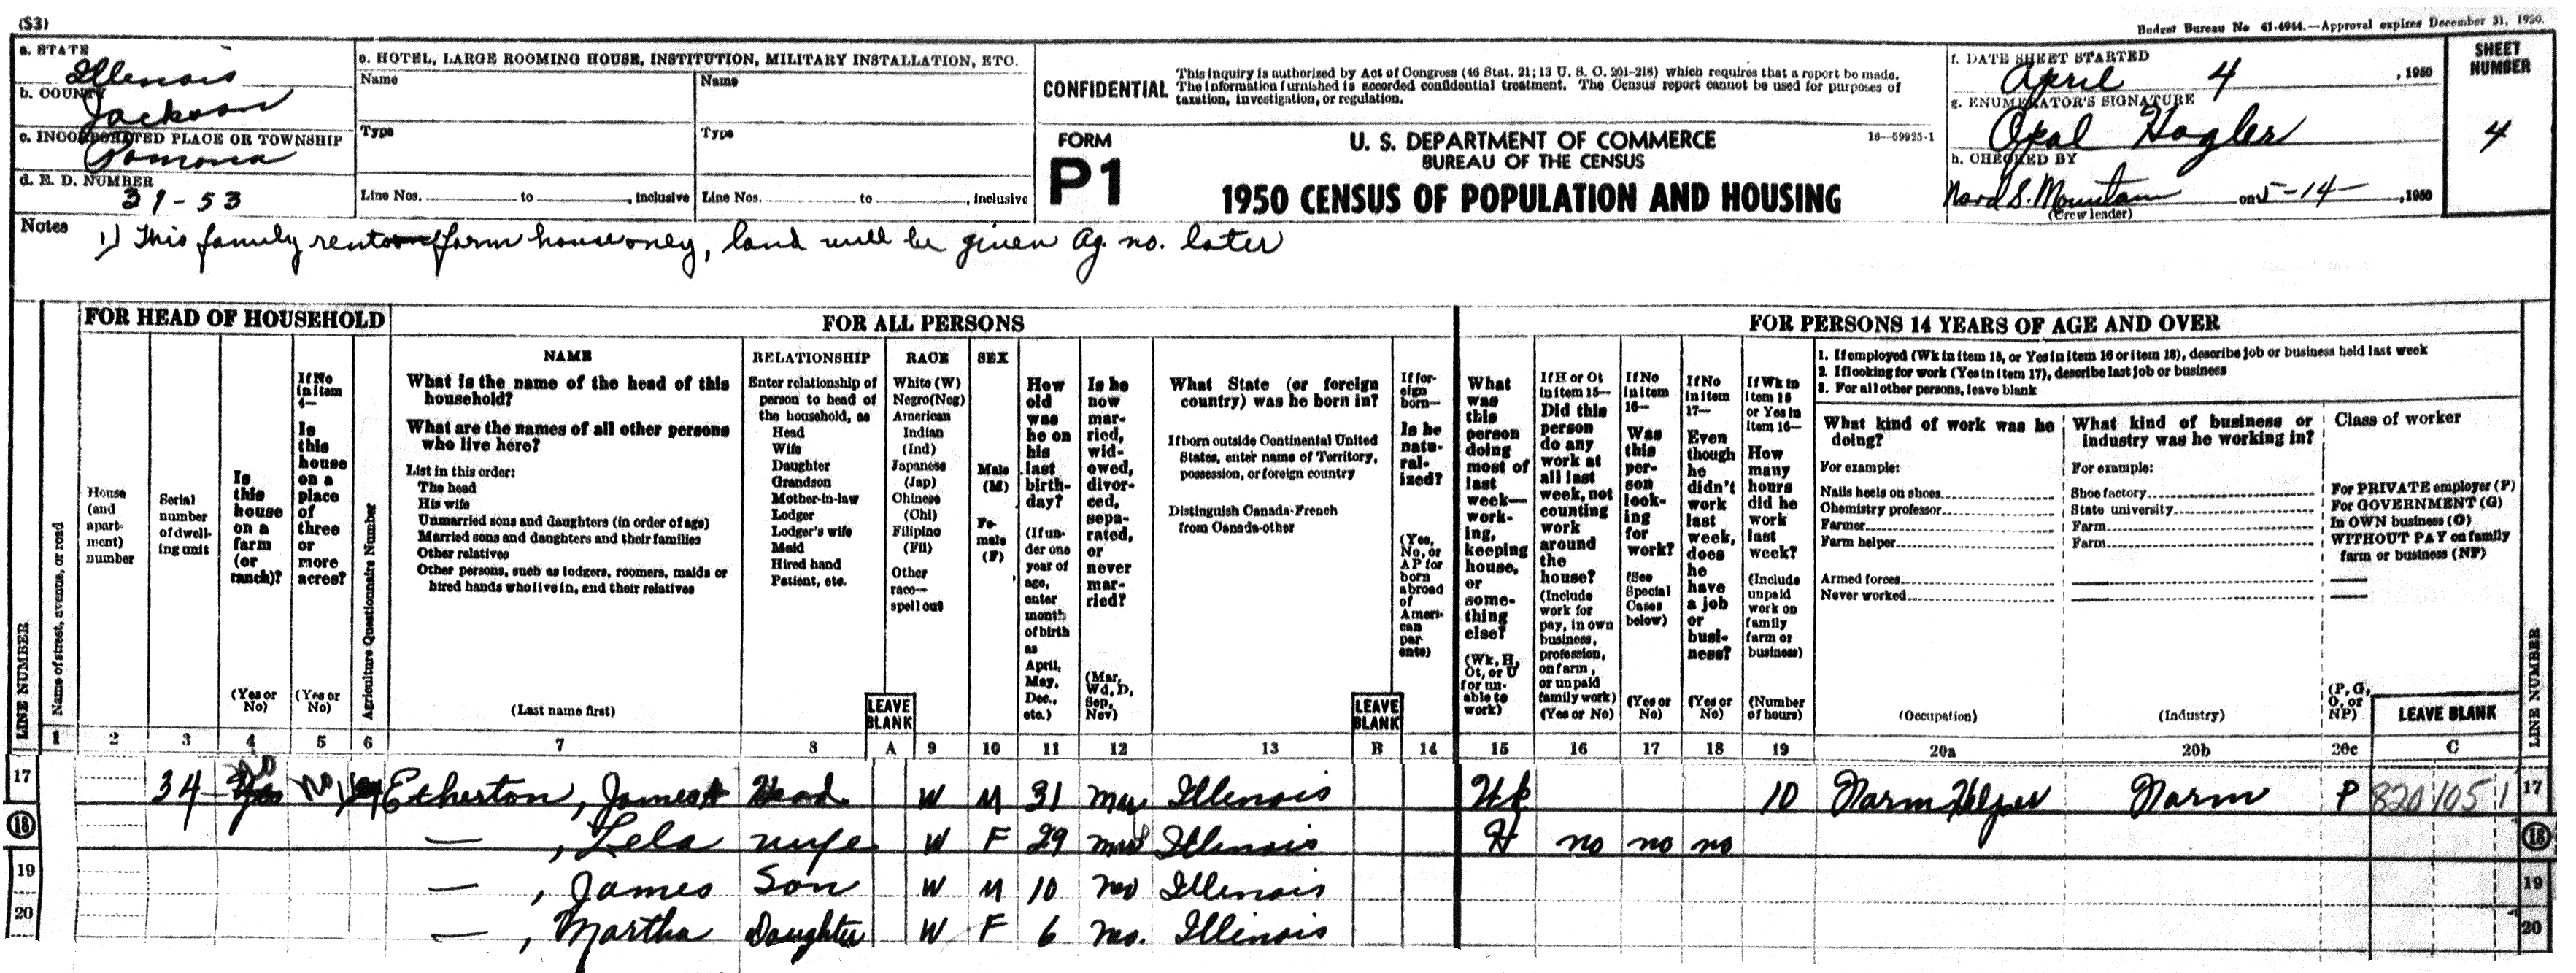 (S3)
Budget Bureau No 41-4944.—Approval expires December 31, 1950.
a. STATE
Illinois
b. COUNTY
Jackson
c. INCORPORATED PLACE OR TOWNSHIP
Pomona
d. E. D. NUMBER
39-53
e. HOTEL, LARGE ROOMING HOUSE, INSTITUTION, MILITARY INSTALLATION, ETC.
Name Name
Type Type
Line Nos. to , inclusive Line Nos. to , inclusive
CONFIDENTIAL
This inquiry is authorized by Act of Congress (46 Stat. 21; 13 U. S. C. 201-218) which requires that a report be made.
The information furnished is accorded confidential treatment. The Census report cannot be used for purposes of
taxation, investigation, or regulation.
FORM
P1
U. S. DEPARTMENT OF COMMERCE
BUREAU OF THE CENSUS
1950 CENSUS OF POPULATION AND HOUSING
16—59925-1
f. DATE SHEET STARTED
April 4 , 1950
g. ENUMERATOR'S SIGNATURE
Opal Hagler
h. CHECKED BY
S. Mountain on 5-14- , 1950
(Crew leader)
SHEET
NUMBER
4
Notes
1) This family rents farm house only, land will be given Ag. no. later
FOR HEAD OF HOUSEHOLD
FOR ALL PERSONS
FOR PERSONS 14 YEARS OF AGE AND OVER
LINE NUMBER
Name of street, avenue, or road
House
(and
apart-
ment)
number
Serial
number
of dwell-
ing unit
Is
this
house
on a
farm
(or
ranch)?
(Yes or
No)
If No
in item
4—
Is
this
house
on a
place
of
three
or
more
acres?
(Yes or
No)
Agriculture Questionnaire Number
NAME
What is the name of the head of this
household?
What are the names of all other persons
who live here?
List in this order:
The head
His wife
Unmarried sons and daughters (in order of age)
Married sons and daughters and their families
Other relatives
Other persons, such as lodgers, roomers, maids or
hired hands who live in, and their relatives
(Last name first)
RELATIONSHIP
Enter relationship of
person to head of
the household, as
Head
Wife
Daughter
Grandson
Mother-in-law
Lodger
Lodger's wife
Maid
Hired hand
Patient, etc.
LEAVE
BLANK
RACE
White (W)
Negro(Neg)
American
Indian
(Ind)
Japanese
(Jap)
Chinese
(Chi)
Filipino
(Fil)
Other
race—
spell out
SEX
Male
(M)
Fe-
male
(F)
How
old
was
he on
his
last
birth-
day?
(If un-
der one
year of
age,
enter
month
of birth
as
April,
May,
Dec.,
etc.)
Is he
now
mar-
ried,
wid-
owed,
divor-
ced,
sepa-
rated,
or
never
mar-
ried?
(Mar,
Wd, D,
Sep,
Nev)
What State (or foreign
country) was he born in?
If born outside Continental United
States, enter name of Territory,
possession, or foreign country
Distinguish Canada-French
from Canada-other
LEAVE
BLANK
If for-
eign
born—
Is he
natu-
ral-
ized?
(Yes,
No, or
AP for
born
abroad
of
Ameri-
can
par-
ents)
What
was
this
person
doing
most of
last
week—
work-
ing,
keeping
house,
or
some-
thing
else?
(Wk, H,
Ot, or U
for un-
able to
work)
If H or Ot
in item 15—
Did this
person
do any
work at
all last
week, not
counting
work
around
the
house?
(Include
work for
pay, in own
business,
profession,
on farm,
or unpaid
family work)
(Yes or No)
If No
in item
16—
Was
this
per-
son
look-
ing
for
work?
(See
Special
Cases
below)
(Yes or
No)
If No
in item
17—
Even
though
he
didn't
work
last
week,
does
he
have
a job
or
busi-
ness?
(Yes or
No)
If Wk in
item 15
or Yes in
item 16—
How
many
hours
did he
work
last
week?
(Include
unpaid
work on
family
farm or
business)
(Number
of hours)
1. If employed (Wk in item 15, or Yes in item 16 or item 18), describe job or business held last week
2. If looking for work (Yes in item 17), describe last job or business
3. For all other persons, leave blank
What kind of work was he
doing?
For example:
Nails heels on shoes
Chemistry professor
Farmer
Farm helper
Armed forces
Never worked
(Occupation)
What kind of business or
industry was he working in?
For example:
Shoe factory
State university
Farm
Farm
(Industry)
Class of worker
For PRIVATE employer (P)
For GOVERNMENT (G)
In OWN business (O)
WITHOUT PAY on family
farm or business (NP)
(P, G,
O, or
NP)
LEAVE BLANK
LINE NUMBER
1 2 3 4 5 6 7 8 A 9 10 11 12 13 B 14 15 16 17 18 19 20a 20b 20c C
17 34 Yes no No Etherton, James Head W M 31 Mar Illinois Wk 10 Farm Helper Farm P 820 105 1 17
18 — , Lela wife W F 29 Mar Illinois H no no no 18
19 — , James Son W M 10 Nev Illinois 19
20 — , Martha Daughter W F 6 Illinois 20